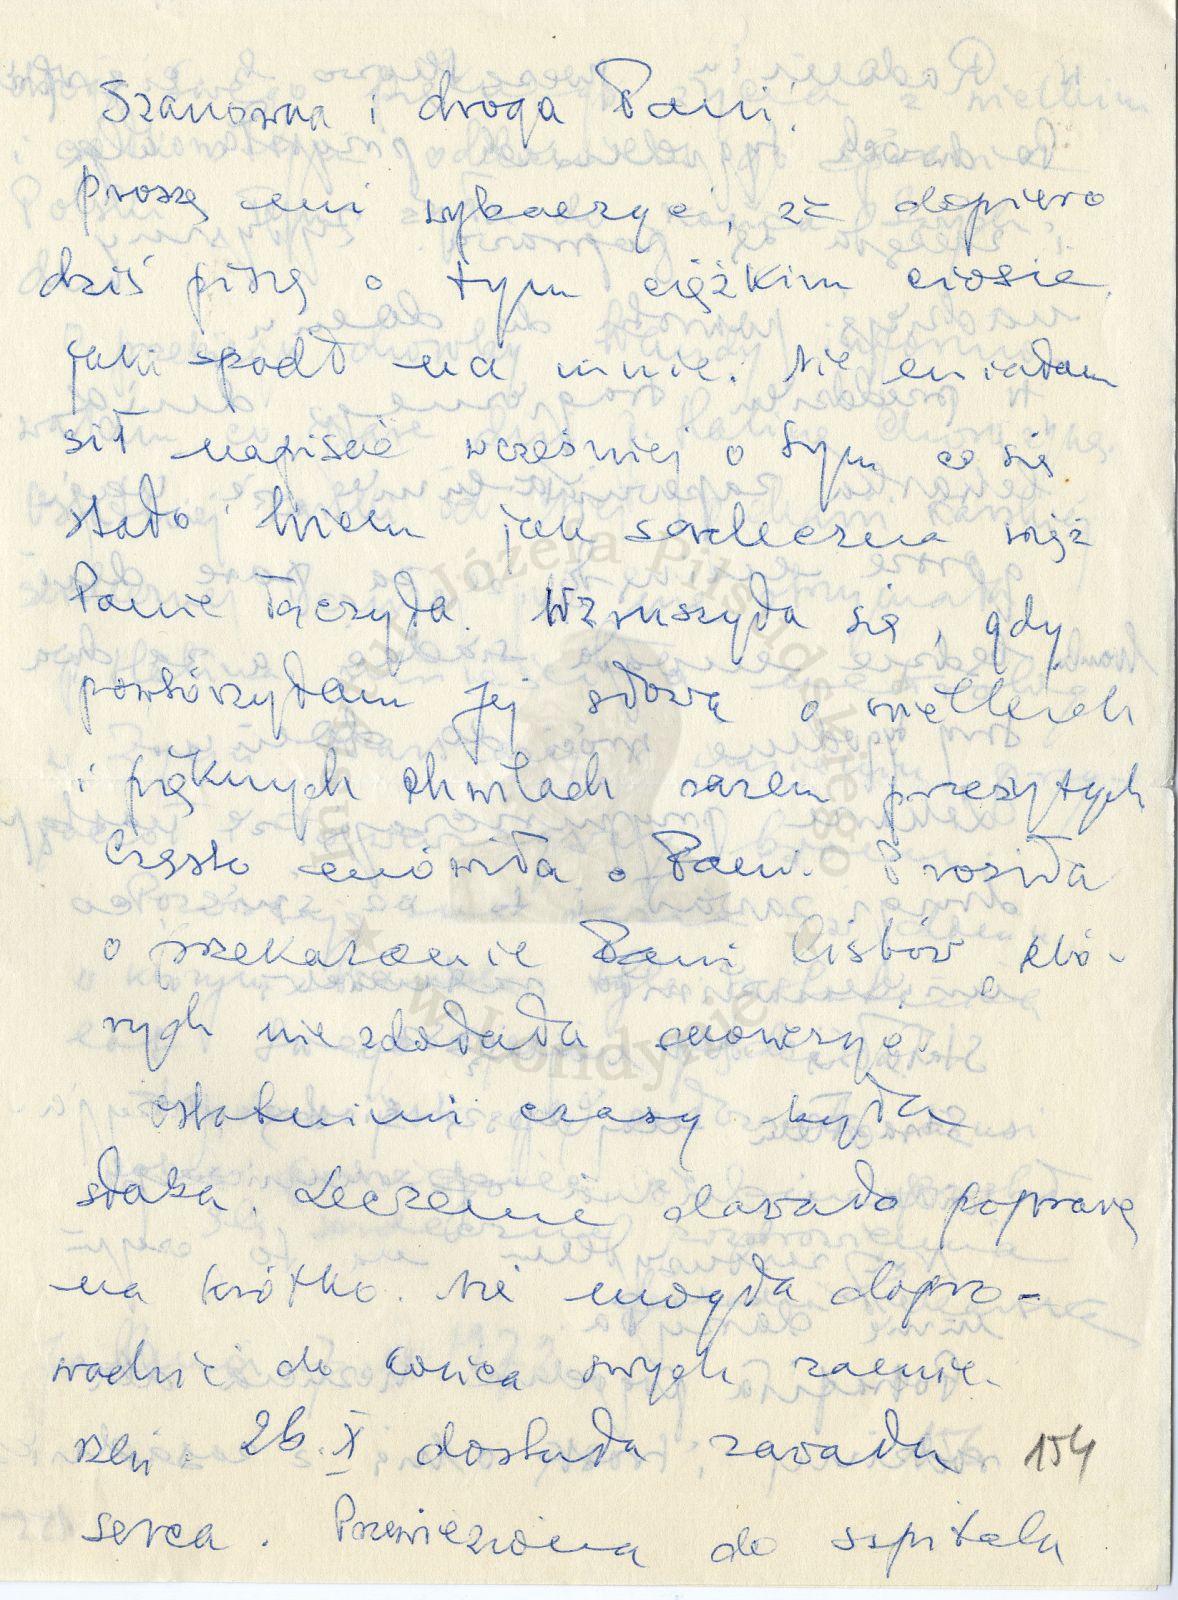 Szanowna i droga Pani!
proszę mi wybaczyć, że dopiero
dziś piszę o tym ciężkim ciosie
jaki spadł na mnie. Nie miałam
sił napisać wcześniej o tym co się
stało. Wiem jak serdeczna więź
Panie łączyła. Wzruszyła się, gdy
powtórzyłam Jej słowa o wielkich
i pięknych chwilach razem przeżytych
Często mówiła o Pani. Prosiła
o przekazanie Pani listów, któ-
rych nie zdołała skończyć.
ostatnimi czasy była
słaba. Leczenie dawało poprawę
na krótko. Nie mogła dopro-
wadzić do końca swych zamie-
rzeń. 26.X dostała zawału 154
serca. Przewieziona do szpitala
Józefa Piłsudskiego
w Londynie